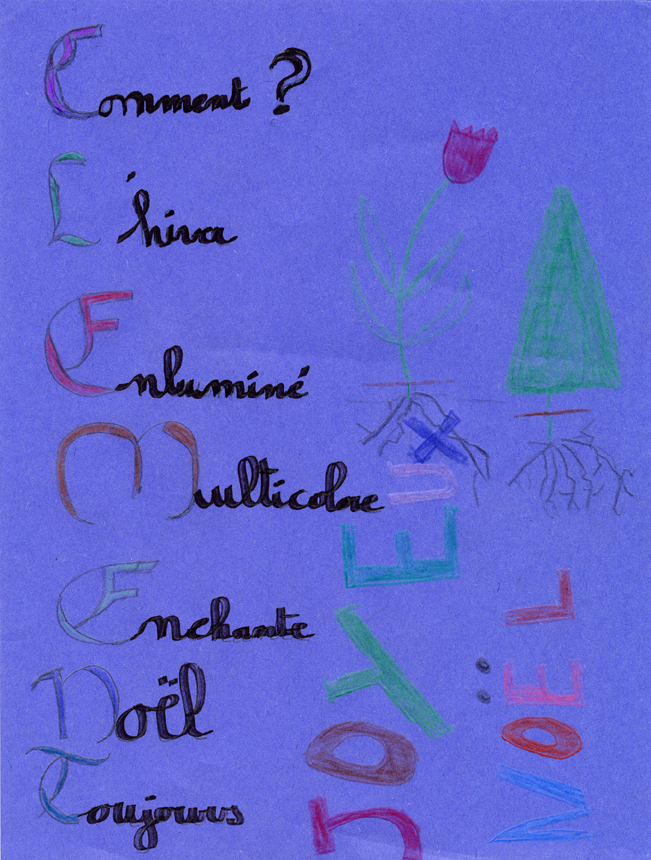 Comment ?
L'hiver
Enluminé
Multicolore
Enchante
Noël
Toujours
JOYEUX
NOËL